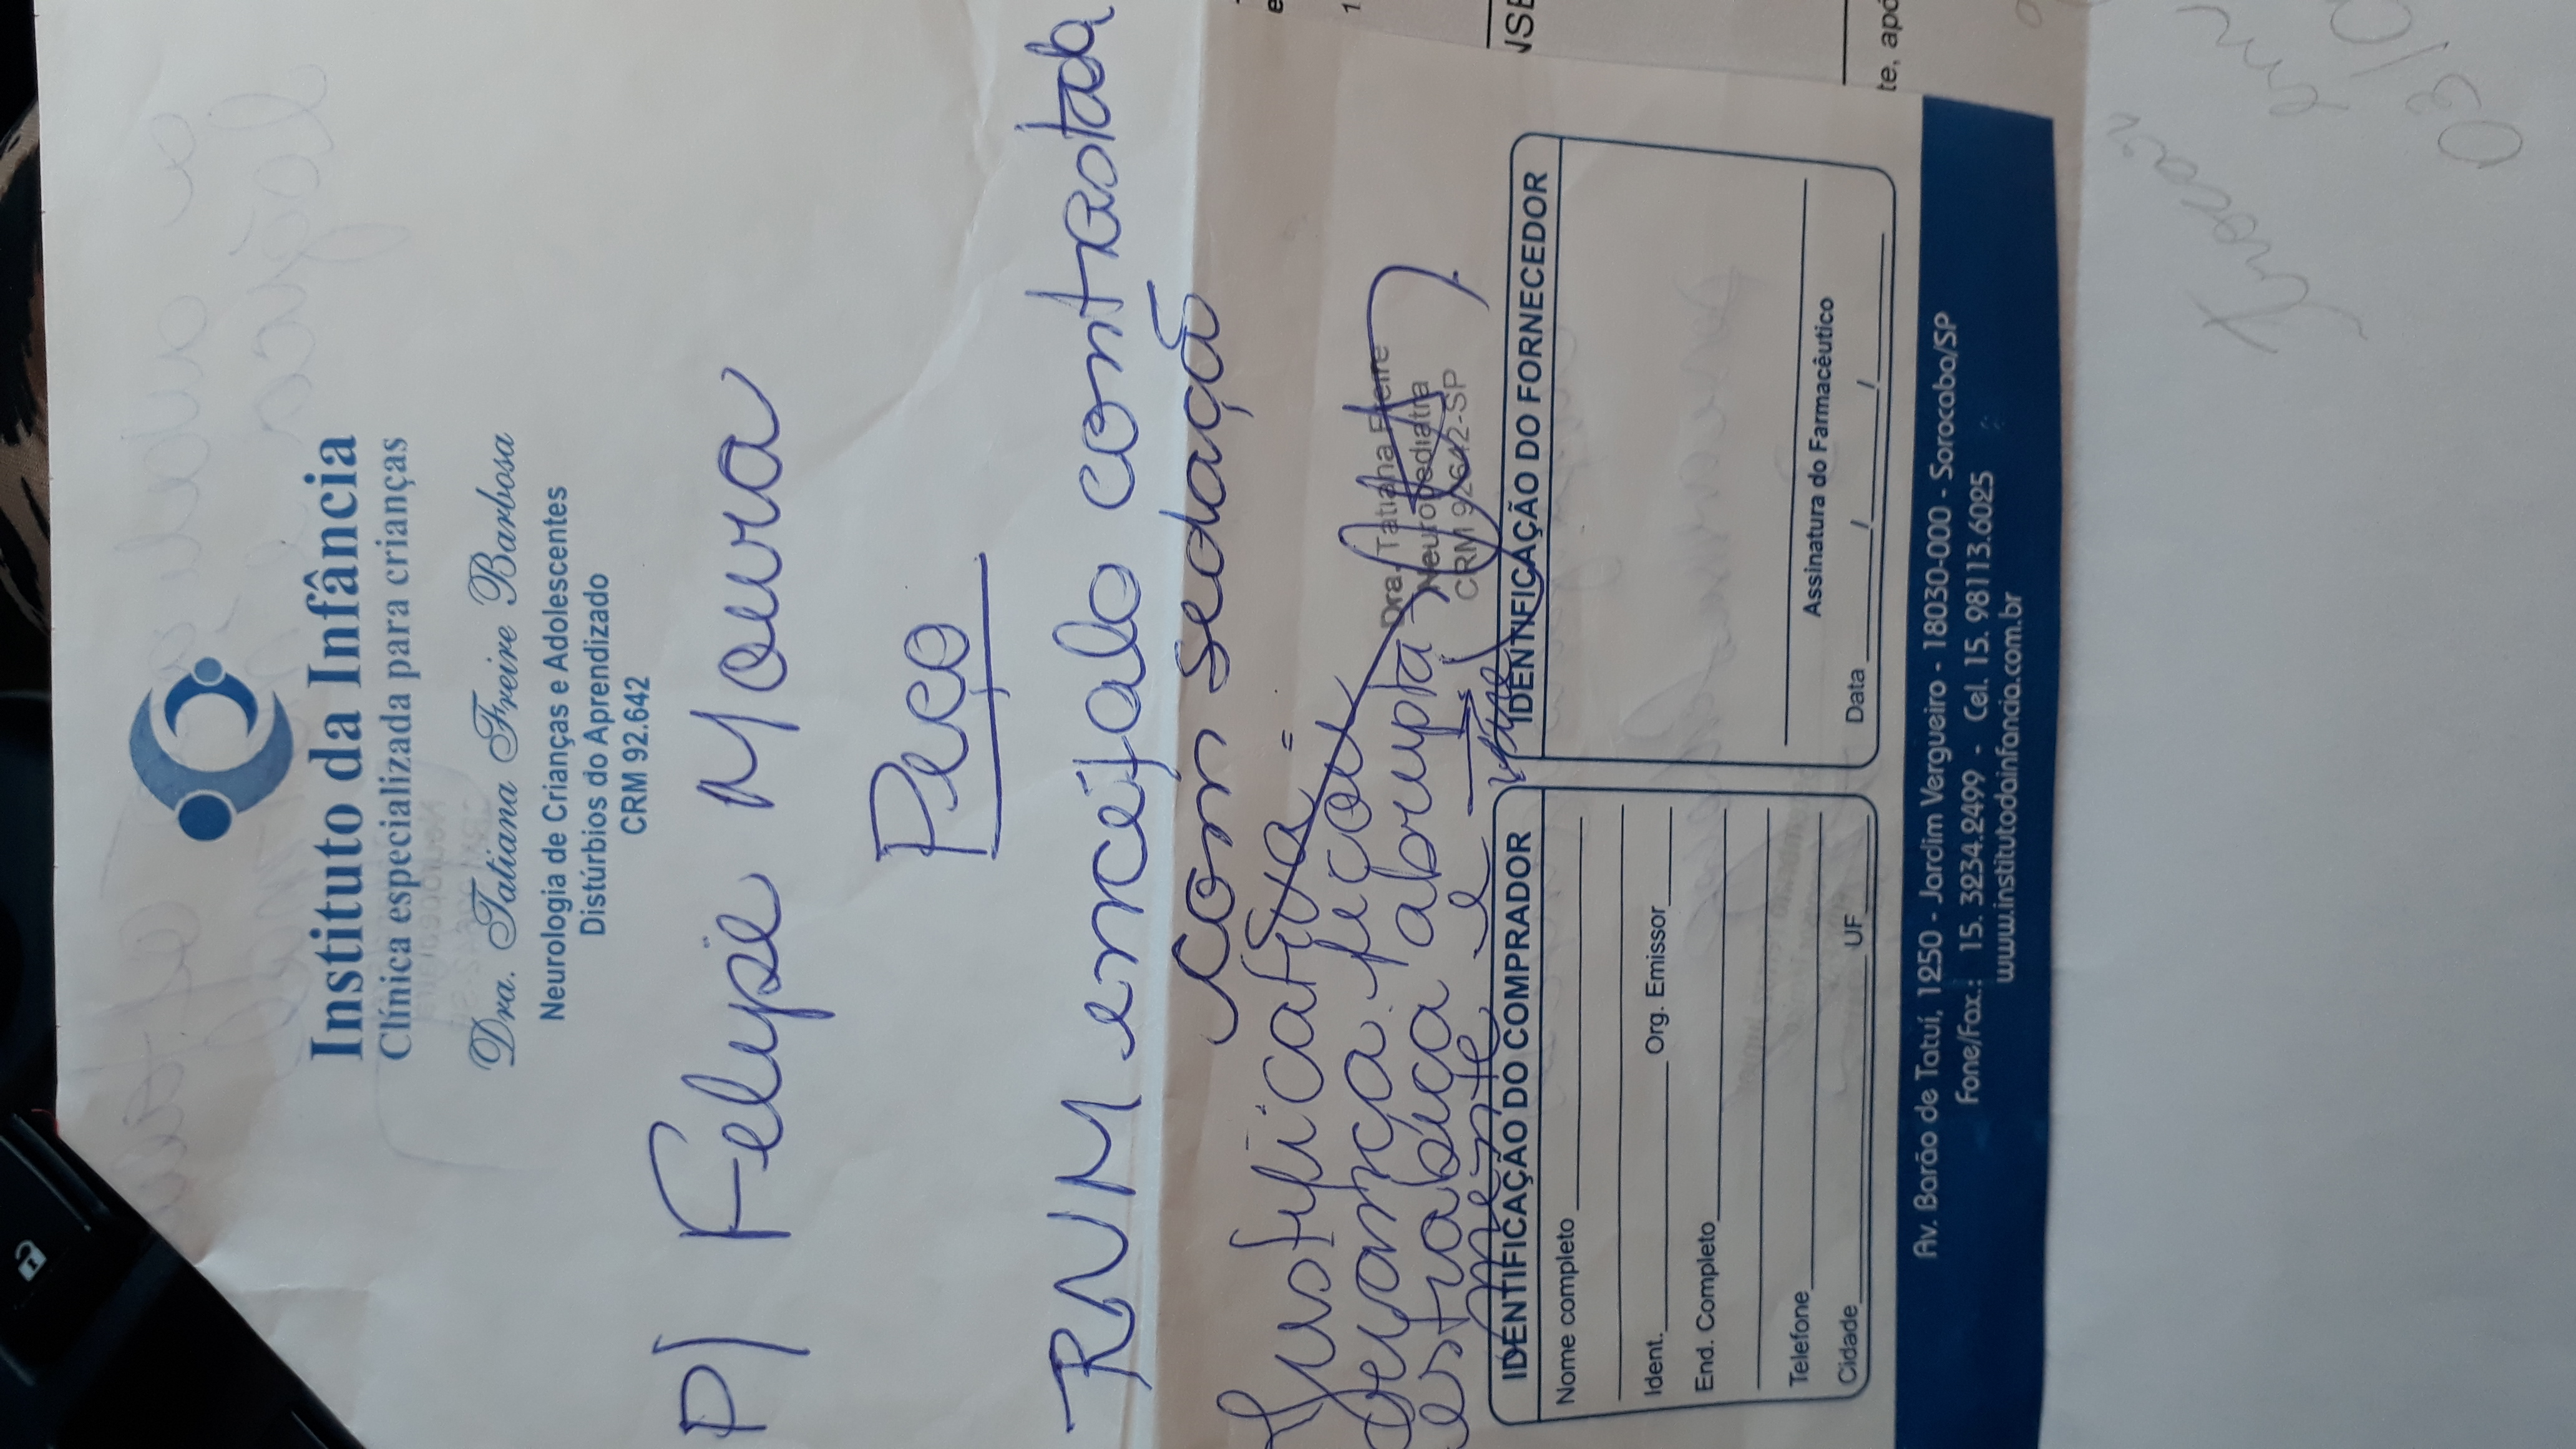 Instituto da Infância
Clínica especializada para crianças
Dra. Tatiana Freire Barbosa
Neurologia de Crianças e Adolescentes
Distúrbios do Aprendizado
CRM 92.642
P/ Felipe Moura
Peço
RNM encéfalo contrastada
com sedação
Justificativa =
criança ficou
estrábica abrupta
mente e → vire
Dra. Tatiana Freire
Neuropediatra
CRM 92642-SP
IDENTIFICAÇÃO DO COMPRADOR
Nome completo
Ident. Org. Emissor
End. Completo
Telefone
Cidade UF
IDENTIFICAÇÃO DO FORNECEDOR
Assinatura do Farmacêutico
Data / /
Av. Barão de Tatuí, 1250 - Jardim Vergueiro - 18030-000 - Sorocaba/SP
Fone/Fax.: 15. 3234.2499 - Cel. 15. 98113.6025
www.institutodainfancia.com.br
te, apó
trocar
em
03/0